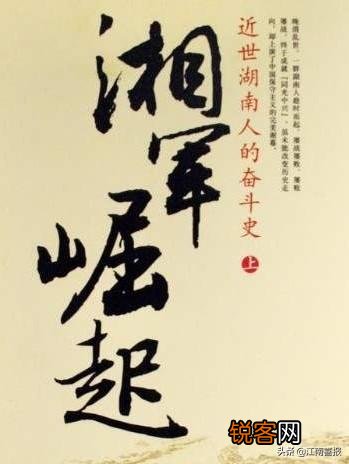 湘军崛起
近世湖南人的奋斗史
上
晚清乱世，一群湖南人趁时而起，屡战屡败，屡败
屡战，终于成就「同光中兴」，虽未能改变历史走
向，却上演了中国保守主义的完美谢幕。
锐客网
头条 @江南晋报